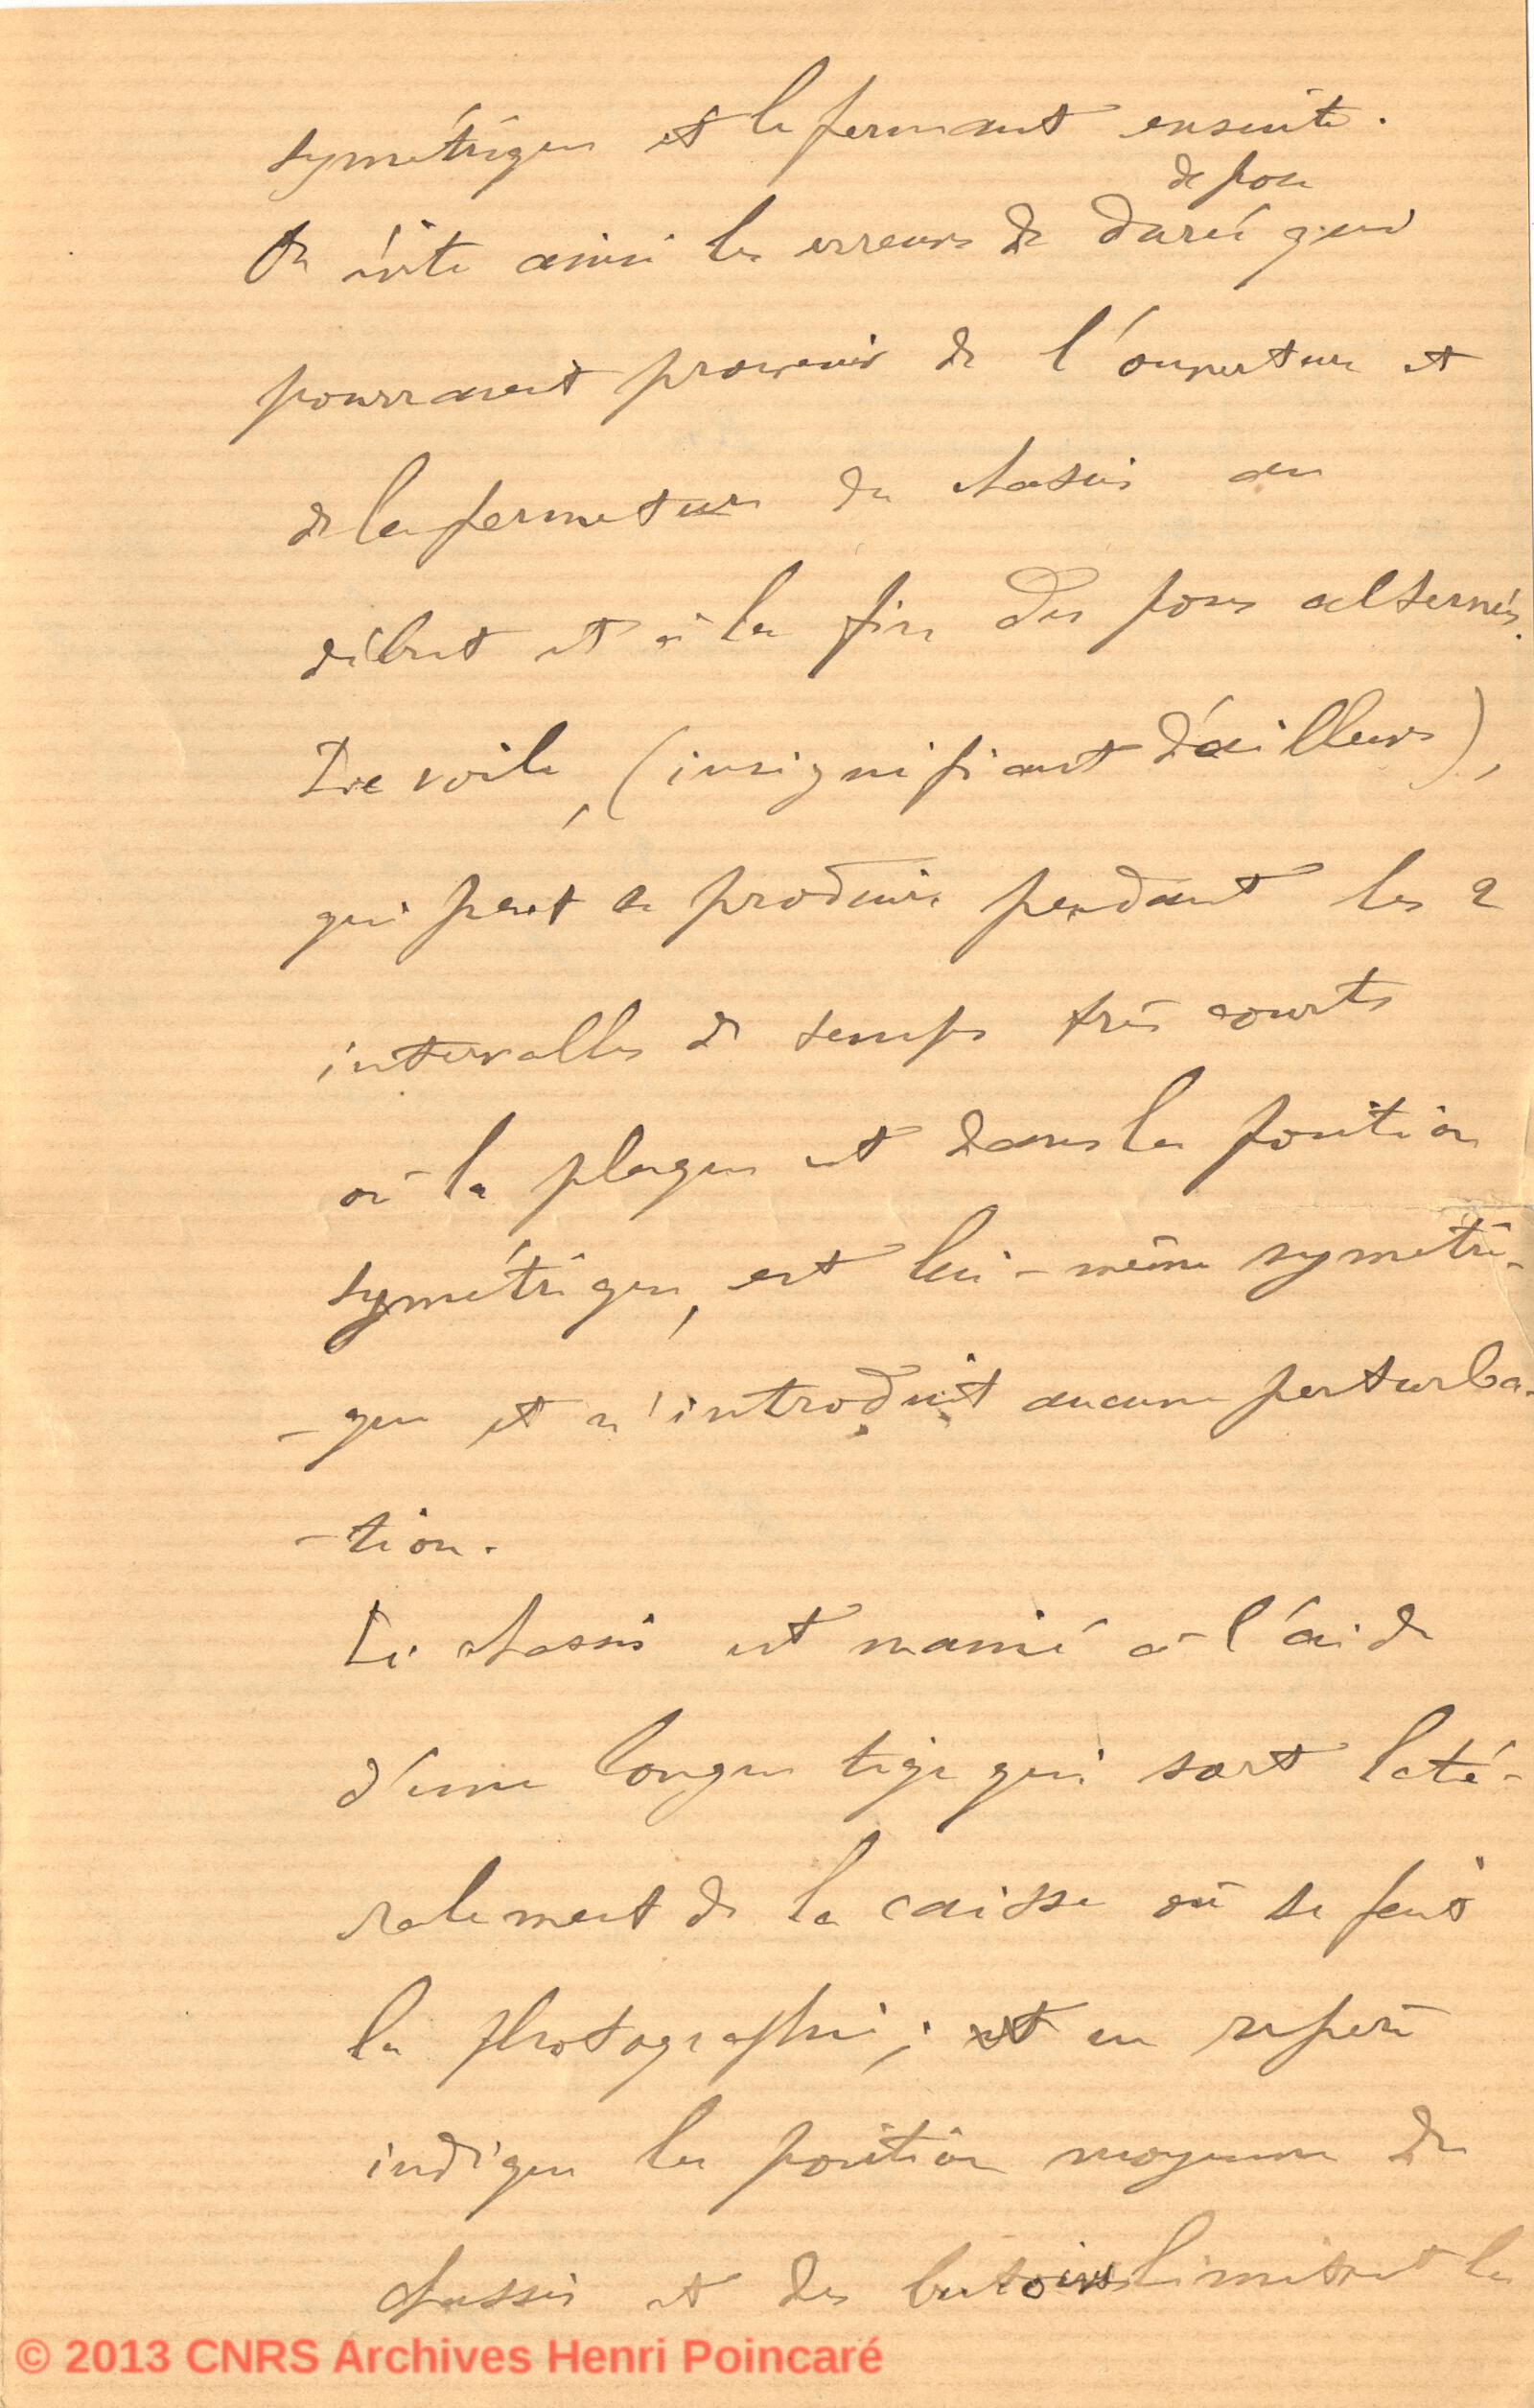 symétrique et le fermant ensuite.
de pose
On évite ainsi les erreurs de durée qui
pourraient provenir de l'ouverture et
de la fermeture du chassis au
début et à la fin des poses alternées.
Le voile, (insignifiant d'ailleurs),
qui peut se produire pendant les 2
intervalles de temps très courts
où la plaque est dans la position
symétrique, est lui-même symétri-
-que et n'introduit aucune perturba-
-tion.
Le chassis est manié à l'aide
d'une longue tige qui sort laté-
ralement de la caisse où se fait
la photographie; un repère
indique la position moyenne du
chassis et des butoirs limitent la
© 2013 CNRS Archives Henri Poincaré